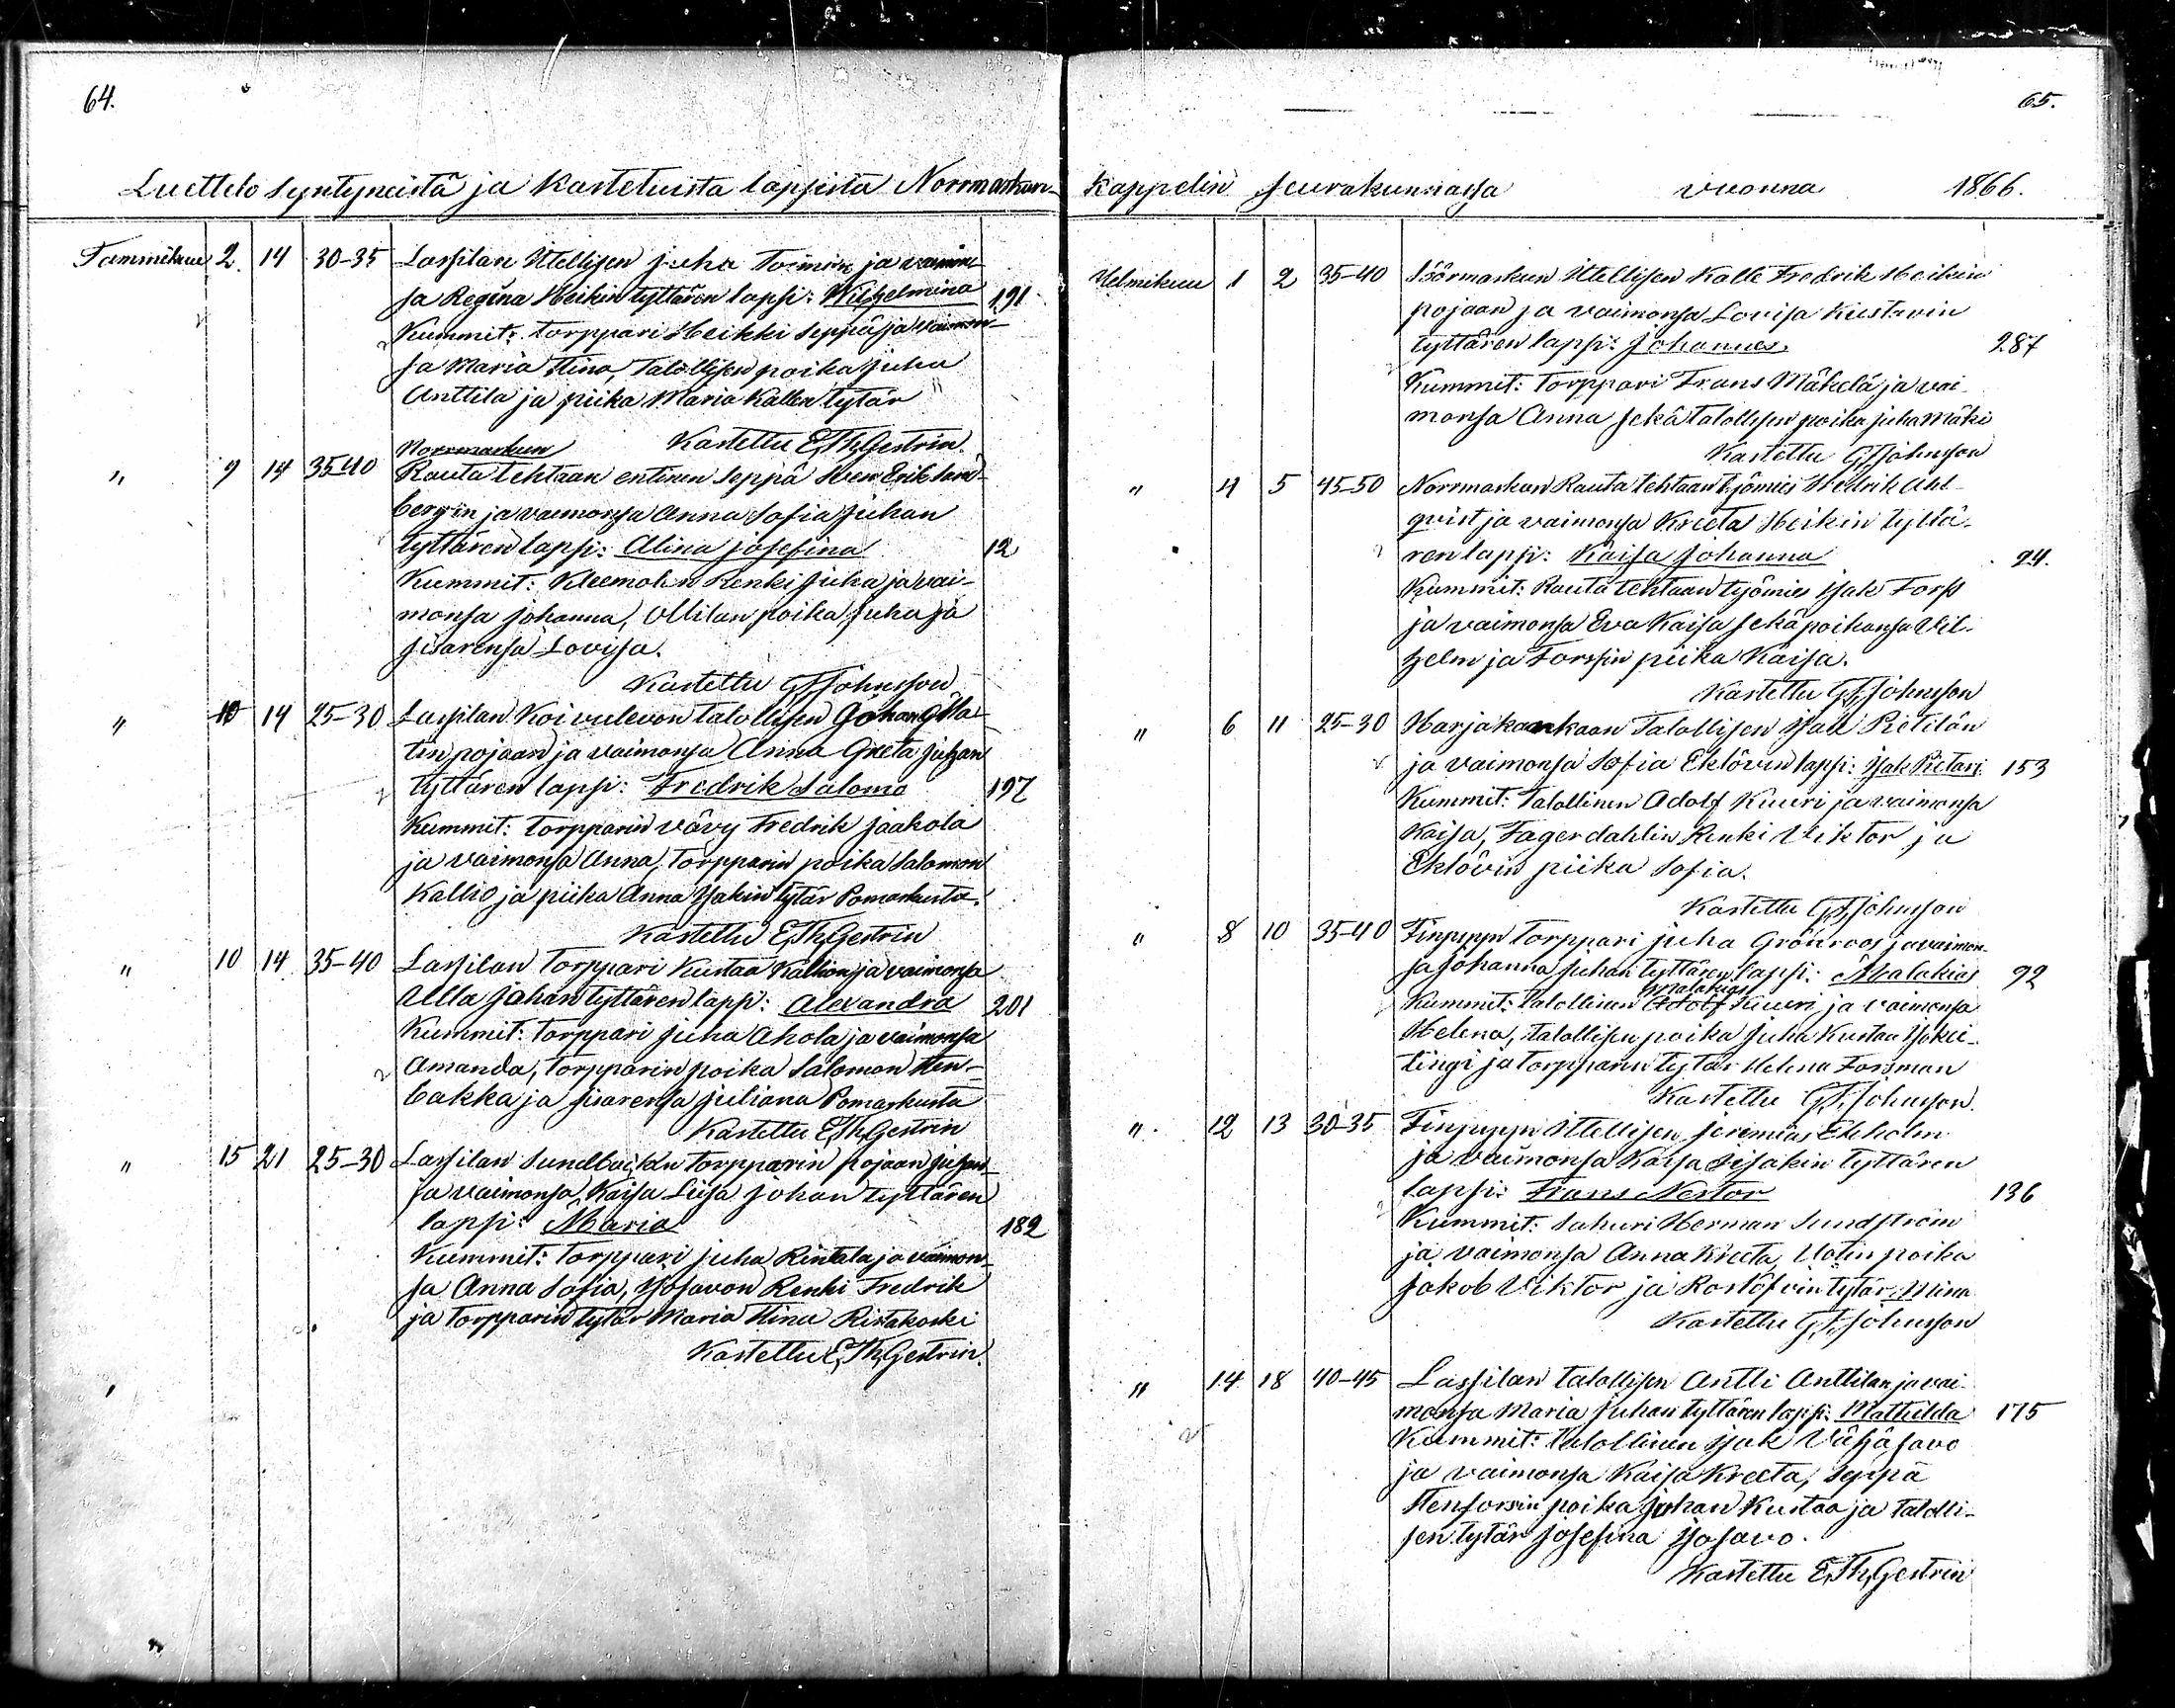 64.
Luettelo syntyneistä ja kastetuista lapsista Norrmarkun
Tammikuu 2. 14 30-35 Lassilan Itellisen Juha Toimin ja vaimon-
sa Regina Heikin tyttären lapsi: Wilhelmina 191
Kummit: torppari Heikki Seppä ja vaimon-
sa Maria Stina, Talollisen poika Juha
Anttila ja piika Maria Kallen tytär
Kastettu E,Th,Gestrin.
Norrmarkun
" 9 14 35-40 Rauta tehtaan entinen seppä Sven Erik
bergin ja vaimonsa Anna Sofia Juhan
tyttären lapsi: Alina Josefina 12
Kummit: Kleemolan Renki Juha ja vai-
monsa Johanna, Ollilan poika Juha ja
sisarensa Lovisa.
Kastettu G,F,Johnsson
" 10 14 25-30 Lassilan Koivulevon talollisen Johan Ma-
tin pojaan ja vaimonsa Anna Greta Juhan
tyttären lapsi: Fredrik Salomo 197
Kummit: torpparin vävy Fredrik Jaakola
ja vaimonsa Anna, torpparin poika Salomon
Kallio ja piika Anna Isakin tytär Pomarkusta.
Kastettu E,Th,Gestrin
" 10 14 35-40 Lassilan Torppari Kustaa Kallion ja vaimonsa
Ulla Johan tyttären lapsi: Alexandra 201
Kummit: torppari Juha Ahola ja vaimonsa
Amanda, torpparin poika Salomon Sten-
bakka ja sisarensa Juliana Pomarkusta
Kastettu E,Th,Gestrin
" 15 21 25-30 Lassilan Sundbackn torpparin pojaan Juhan
ja vaimonsa Kaisa Liisa Johan tyttären
lapsi: Maria 182
Kummit: torppari Juha Rintala ja vaimon-
sa Anna Sofia, Isosavon Renki Fredrik
ja torpparin tytär Maria Stina Ristakoski
Kastettu E,Th,Gestrin.
65.
Kappelin seurakunnassa vuonna 1866.
Helmikuu 1 2 35-40 Sörmarkun Itellisen Kalle Fredrik Heikin
pojaan ja vaimonsa Lovisa Kustavin
tyttären lapsi: Johannes. 287
Kummit: torppari Frans Mäkelä ja vai-
monsa Anna sekä talollisen poika Juha Mäki
Kastettu G,F,Johnsson
" 4 5 45-50 Norrmarkun Rauta tehtaan työmies Hedrik Ahl-
qvist ja vaimonsa Kreeta Heikin tyttä-
ren lapsi: Kaisa Johanna 24.
Kummit: Rauta tehtaan työmies Isak Forss
ja vaimonsa Eva Kaisa sekä poikansa Vil-
helm ja Forssin piika Kaisa.
Kastettu G,F,Johnsson
" 6 11 25-30 Harjakankaan Talollisen Isak Pietilän
ja vaimonsa Sofia Eklövin lapsi: Isak Pietari 153
Kummit: Talollinen Adolf Kuuri ja vaimonsa
Kaisa, Fagerdahlin Renki Viktor ja
Eklövin piika Sofia.
Kastettu G,F,Johnsson
" 8 10 35-40 Finpyyn Torppari Juha Grönroos ja vaimon-
sa Johanna Juhan tyttären lapsi: Malakias 92
Malakias
Kummit: talollinen Adolf Kuuri ja vaimonsa
Helena, talollisen poika Juha Kustaa
tingi ja torpparin tytär Helena Forsman
Kastettu G,F,Johnsson.
" 12 13 30-35 Finpyyn Itellisen Jeremias Ekholm
ja vaimonsa Kaisa Iisakin tyttären
lapsi: Frans Nestor 136
Kummit: Sahuri Herman Sundström
ja vaimonsa Anna Kreeta, Uotin poika
Jakob Viktor ja Rostöfvin tytär Mina
Kastettu G,F,Johnsson
" 14 18 40-45 Lassilan talollisen Antti Anttilan ja vai-
monsa Maria Juhan tyttären lapsi: Mathilda 175
Kummit: talollinen Isak Vähäsavo
ja vaimonsa Kaisa Kreeta, Seppä
Stenforsin poika Johan Kustaa ja talolli-
sen tytär Josefina Isosavo.
Kastettu E,Th,Gestrin